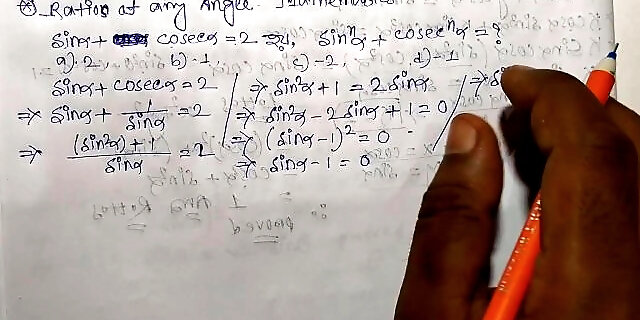 Ratios at any Angle.
sinα + cosecα = 2 হয়, sinⁿα + cosecⁿα = ?
a) 2, b) 1, c) -2, d) -1
sinα + cosecα = 2
⇒ sinα + 1/sinα = 2
⇒ (sin²α) + 1 / sinα = 2
⇒ sin²α + 1 = 2 sinα
⇒ sin²α - 2 sinα + 1 = 0
⇒ (sinα - 1)² = 0
⇒ sinα - 1 = 0
⇒